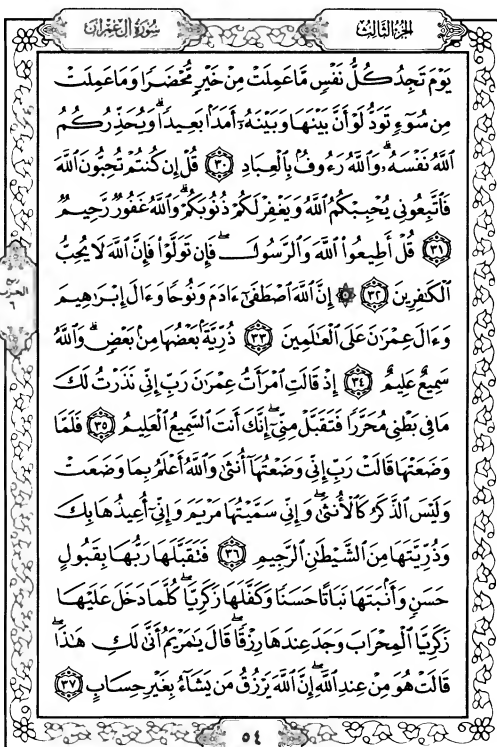 سُورَةُ آلِ عِمْرَان
الجُزْءُ الثَّالِث
يَوْمَ تَجِدُ كُلُّ نَفْسٍ مَّا عَمِلَتْ مِنْ خَيْرٍ مُّحْضَرًا وَمَا عَمِلَتْ
مِن سُوٓءٍ تَوَدُّ لَوْ أَنَّ بَيْنَهَا وَبَيْنَهُۥٓ أَمَدًۢا بَعِيدًا ۗ وَيُحَذِّرُكُمُ
ٱللَّهُ نَفْسَهُۥ ۗ وَٱللَّهُ رَءُوفٌۢ بِٱلْعِبَادِ ٣٠ قُلْ إِن كُنتُمْ تُحِبُّونَ ٱللَّهَ
فَٱتَّبِعُونِى يُحْبِبْكُمُ ٱللَّهُ وَيَغْفِرْ لَكُمْ ذُنُوبَكُمْ ۗ وَٱللَّهُ غَفُورٌ رَّحِيمٌ
٣١ قُلْ أَطِيعُوا۟ ٱللَّهَ وَٱلرَّسُولَ ۖ فَإِن تَوَلَّوْا۟ فَإِنَّ ٱللَّهَ لَا يُحِبُّ
ٱلْكَـٰفِرِينَ ٣٢ ۞ إِنَّ ٱللَّهَ ٱصْطَفَىٰٓ ءَادَمَ وَنُوحًا وَءَالَ إِبْرَٰهِيمَ
وَءَالَ عِمْرَٰنَ عَلَى ٱلْعَـٰلَمِينَ ٣٣ ذُرِّيَّةًۢ بَعْضُهَا مِنۢ بَعْضٍ ۗ وَٱللَّهُ
سَمِيعٌ عَلِيمٌ ٣٤ إِذْ قَالَتِ ٱمْرَأَتُ عِمْرَٰنَ رَبِّ إِنِّى نَذَرْتُ لَكَ
مَا فِى بَطْنِى مُحَرَّرًا فَتَقَبَّلْ مِنِّىٓ ۖ إِنَّكَ أَنتَ ٱلسَّمِيعُ ٱلْعَلِيمُ ٣٥ فَلَمَّا
وَضَعَتْهَا قَالَتْ رَبِّ إِنِّى وَضَعْتُهَآ أُنثَىٰ وَٱللَّهُ أَعْلَمُ بِمَا وَضَعَتْ
وَلَيْسَ ٱلذَّكَرُ كَٱلْأُنثَىٰ ۖ وَإِنِّى سَمَّيْتُهَا مَرْيَمَ وَإِنِّىٓ أُعِيذُهَا بِكَ
وَذُرِّيَّتَهَا مِنَ ٱلشَّيْطَـٰنِ ٱلرَّجِيمِ ٣٦ فَتَقَبَّلَهَا رَبُّهَا بِقَبُولٍ
حَسَنٍ وَأَنۢبَتَهَا نَبَاتًا حَسَنًا وَكَفَّلَهَا زَكَرِيَّا ۖ كُلَّمَا دَخَلَ عَلَيْهَا
زَكَرِيَّا ٱلْمِحْرَابَ وَجَدَ عِندَهَا رِزْقًا ۖ قَالَ يَـٰمَرْيَمُ أَنَّىٰ لَكِ هَـٰذَا ۖ
قَالَتْ هُوَ مِنْ عِندِ ٱللَّهِ ۖ إِنَّ ٱللَّهَ يَرْزُقُ مَن يَشَآءُ بِغَيْرِ حِسَابٍ ٣٧
٥٤